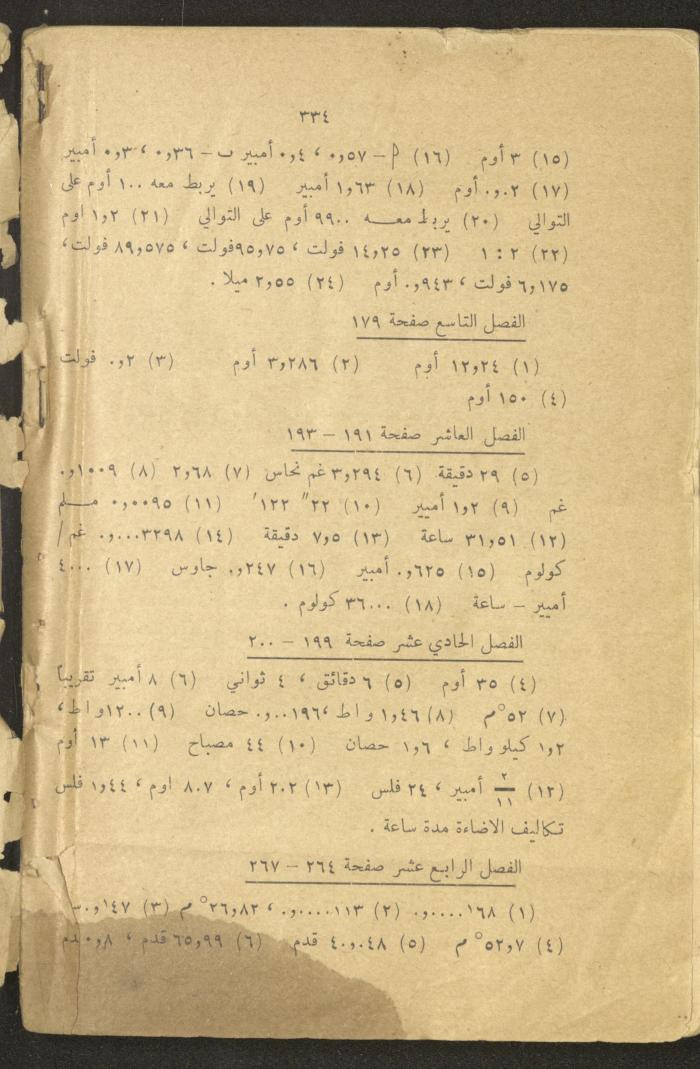 ٣٣٤
(١٥) ٣ أوم (١٦) م — ٠,٥٧ ، ٠,٤ أمبير ب — ٠,٣٦ ، ٠,٣ أمبير
(١٧) ٠,٠٢ أوم (١٨) ١,٦٣ أمبير (١٩) يربط معه ١٠٠ أوم على
التوالي (٢٠) يربط معه ٩٩٠٠ أوم على التوالي (٢١) ١,٢ اوم
(٢٢) ٢ : ١ (٢٣) ١٤,٢٥ فولت ، ٩٥,٧٥ فولت ، ٨٩,٥٧٥ فولت ،
٦,١٧٥ فولت ، ٠,٩٤٣ أوم (٢٤) ٢,٥٥ ميلا .
الفصل التاسع صفحة ١٧٩
(١) ١٢,٢٤ أوم (٢) ٣,٢٨٦ أوم (٣) ٠,٢ فولت
(٤) ١٥٠ أوم
الفصل العاشر صفحة ١٩١ — ١٩٣
(٥) ٢٩ دقيقة (٦) ٣,٢٩٤ غم نحاس (٧) ٢,٦٨ (٨) ٠,١٠٠٩
غم (٩) ١,٢ أمبير (١٠) ٢٢″ ١٢٢′ (١١) ٠,٠٠٩٥ ملم
(١٢) ٣١,٥١ ساعة (١٣) ٧,٥ دقيقة (١٤) ٠,٠٠٠٣٢٩٨ غم /
كولوم (١٥) ٠,٦٢٥ أمبير (١٦) ٠,٢٤٧ جاوس (١٧) ٤٠٠٠
أمبير — ساعة (١٨) ٣٦٠٠٠ كولوم .
الفصل الحادي عشر صفحة ١٩٩ — ٢٠٠
(٤) ٣٥ أوم (٥) ٦ دقائق ، ٤ ثواني (٦) ٨ أمبير تقريباً
(٧) ٥٢°م (٨) ١,٤٦ واط ، ٠,٠٠١٩٦ حصان (٩) ١٢٠٠ واط ،
١,٢ كيلو واط ، ١,٦ حصان (١٠) ٤٤ مصباح (١١) ١٣ أوم
(١٢) ٢/١١ أمبير ، ٢٤ فلس (١٣) ٢٠٢ أوم ، ٨٠٧ اوم ، ١,٤٤ فلس
تكاليف الاضاءة مدة ساعة .
الفصل الرابع عشر صفحة ٢٦٤ — ٢٦٧
(١) ٠,٠٠٠٠١٦٨ (٢) ٠,٠٠٠٠١١٣ ، ٢٦,٨٢° م (٣)
(٤) ٥٢,٧° م (٥) ٤٠,٠٤٨ قدم (٦) ٦٥,٩٩ قدم ،